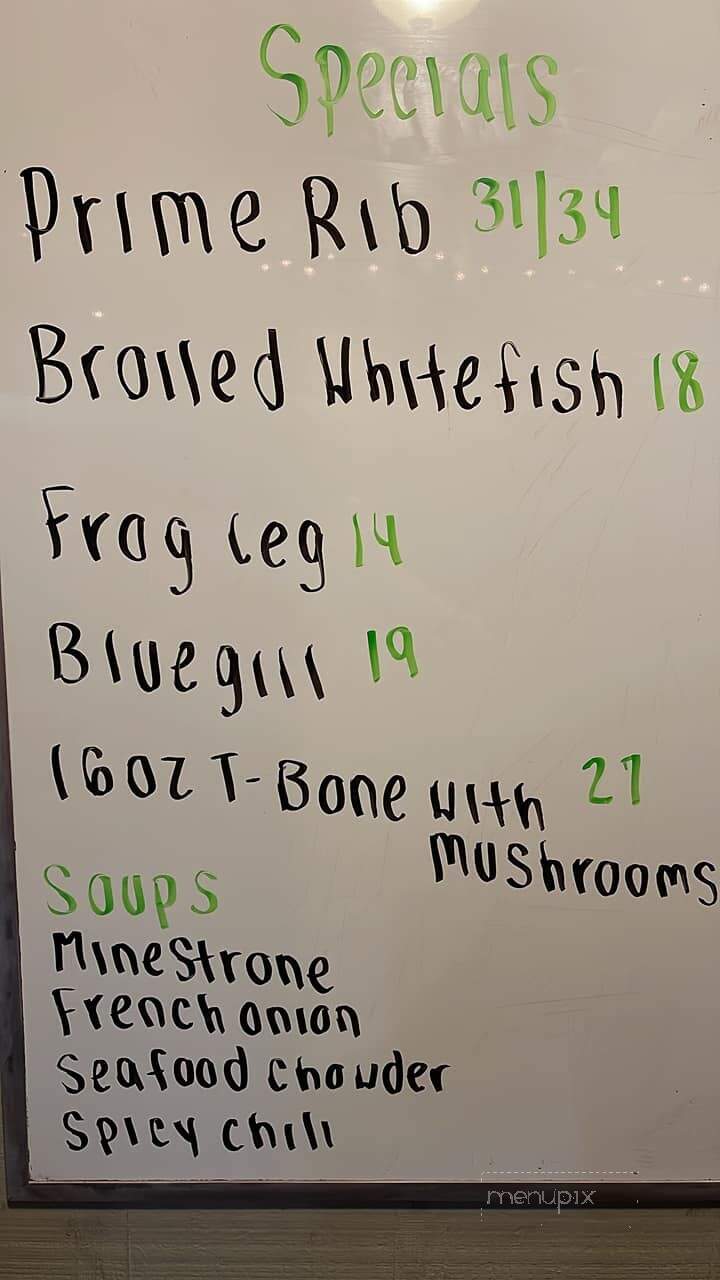 Specials
Prime Rib 31/34
Broiled Whitefish 18
Frog Leg 14
Bluegill 19
16oz T-Bone with 27
mushrooms
Soups
Minestrone
French onion
Seafood chowder
Spicy chili
menupix